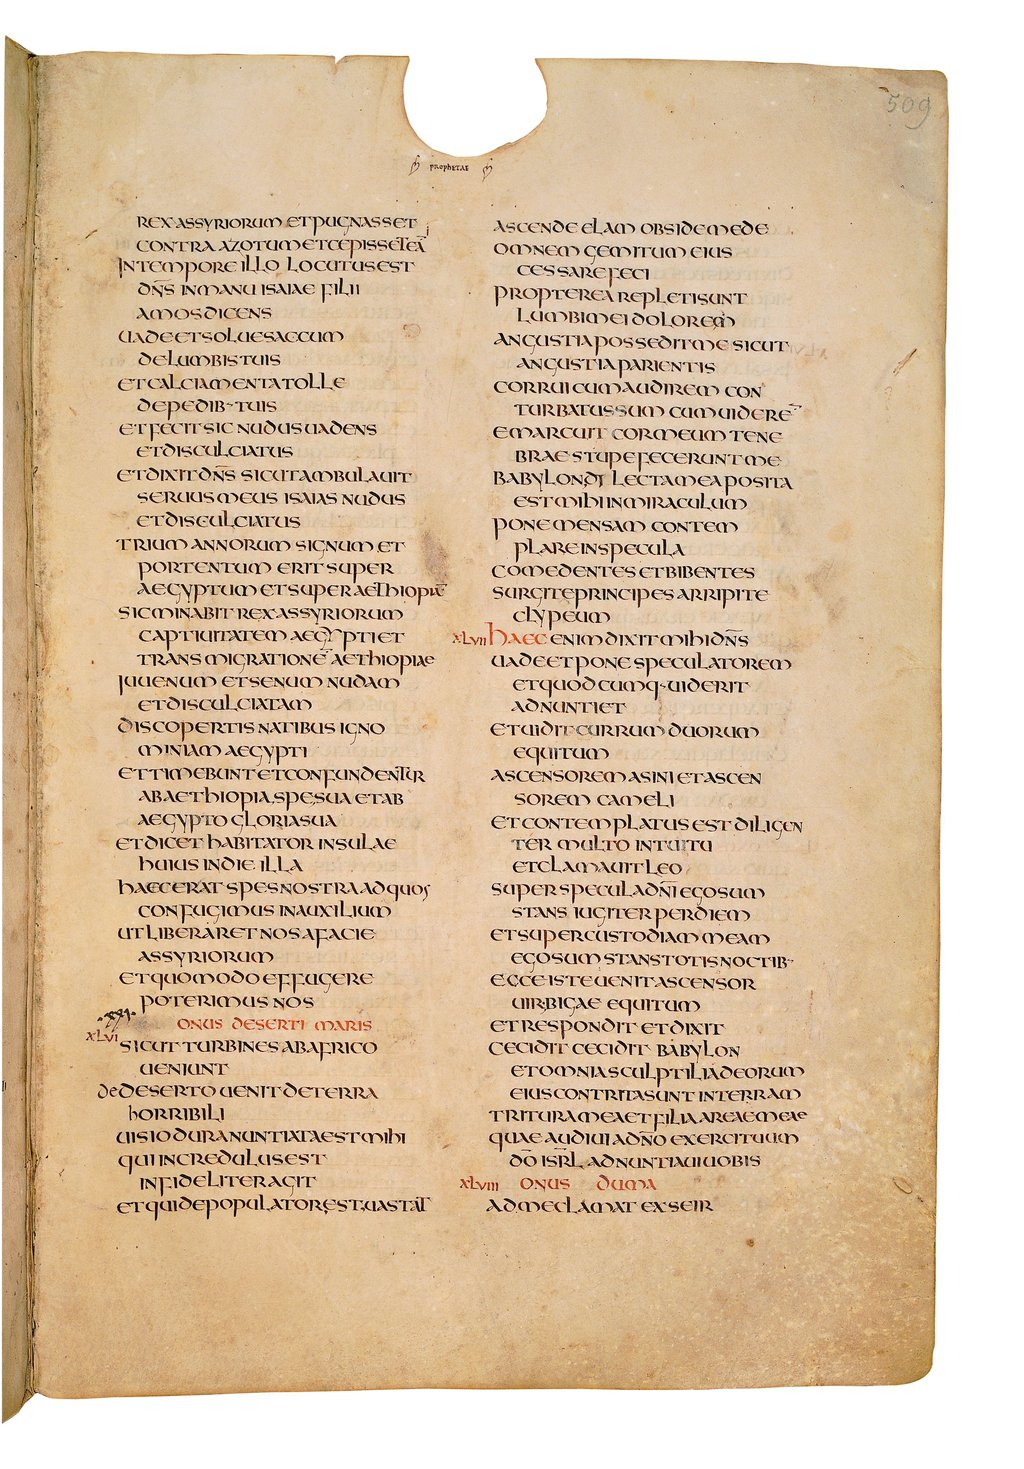 509
prophetae
REX ASSYRIORUM ET PUGNASSET
CONTRA AZOTUM ET CEPISSET EĀ
IN TEMPORE ILLO LOCUTUS EST
DN̄S IN MANU ISAIAE FILII
AMOS DICENS
UADE ET SOLUE SACCUM
DE LUMBIS TUIS
ET CALCIAMENTA TOLLE
DE PEDIB· TUIS
ET FECIT SIC NUDUS UADENS
ET DISCULCIATUS
ET DIXIT DN̄S SICUT AMBULAUIT
SERUUS MEUS ISAIAS NUDUS
ET DISCULCIATUS
TRIUM ANNORUM SIGNUM ET
PORTENTUM ERIT SUPER
AEGYPTUM ET SUPER AETHIOPIĀ
SIC MINABIT REX ASSYRIORUM
CAPTIUITATEM AEGYPTI ET
TRANSMIGRATIONĒ AETHIOPIAE
IUUENUM ET SENUM NUDAM
ET DISCULCIATAM
DISCOPERTIS NATIBUS IGNO
MINIAM AEGYPTI
ET TIMEBUNT ET CONFUNDENTUR
AB AETHIOPIA SPE SUA ET AB
AEGYPTO GLORIA SUA
ET DICET HABITATOR INSULAE
HUIUS IN DIE ILLA
HAECERAT SPES NOSTRA AD QUOS
CONFUGIMUS IN AUXILIUM
UT LIBERARET NOS A FACIE
ASSYRIORUM
ET QUOMODO EFFUGERE
POTERIMUS NOS
ONUS DESERTI MARIS
XLVI SICUT TURBINES AB AFRICO
UENIUNT
de DESERTO UENIT DE TERRA
HORRIBILI
UISIO DURA NUNTIATA EST MIHI
QUI INCREDULUS EST
INFIDELITER AGIT
ET QUI DEPOPULATOR EST UASTAT
ASCENDE ELAM OBSIDE MEDE
OMNEM GEMITUM EIUS
CESSARE FECI
PROPTEREA REPLETI SUNT
LUMBI MEI DOLOREM
ANGUSTIA POSSEDIT ME SICUT
ANGUSTIA PARIENTIS
CORRUI CUM AUDIREM CON
TURBATUS SUM CUM UIDERĒ
EMARCUIT COR MEUM TENE
BRAE STUPEFECERUNT ME
BABYLON DILECTA MEA POSITA
EST MIHI IN MIRACULUM
PONE MENSAM CONTEM
PLARE IN SPECULA
COMEDENTES ET BIBENTES
SURGITE PRINCIPES ARRIPITE
CLYPEUM
XLVII HAEC ENIM DIXIT MIHI DN̄S
UADE ET PONE SPECULATOREM
ET QUODCUMQ· UIDERIT
ADNUNTIET
ET UIDIT CURRUM DUORUM
EQUITUM
ASCENSOREM ASINI ET ASCEN
SOREM CAMELI
ET CONTEMPLATUS EST DILIGEN
TER MULTO INTUITU
ET CLAMAUIT LEO
SUPER SPECULA DN̄I EGO SUM
STANS IUGITER PER DIEM
ET SUPER CUSTODIAM MEAM
EGO SUM STANS TOTIS NOCTIB·
ECCE ISTE UENIT ASCENSOR
UIR BIGAE EQUITUM
ET RESPONDIT ET DIXIT
CECIDIT CECIDIT BABYLON
ET OMNIA SCULPTILIA DEORUM
EIUS CONTRITA SUNT IN TERRAM
TRITURA MEA ET FILIA AREAE MEAE
QUAE AUDIUI A DN̄O EXERCITUUM
DŌ ISRL̄ ADNUNTIAUI UOBIS
XLVIII ONUS DUMA
AD ME CLAMAT EX SEIR